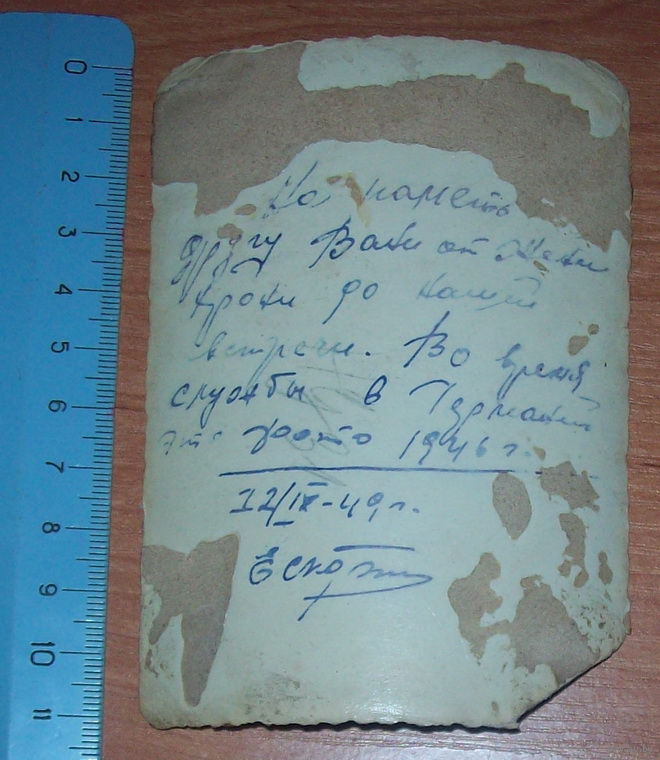 На память
другу Вани от Жени
храни до нашей
встречи. Во время
службы в Германии
это фото 1946 г.
12/IX-49 г.
0
1
2
3
4
5
6
7
8
9
10
11